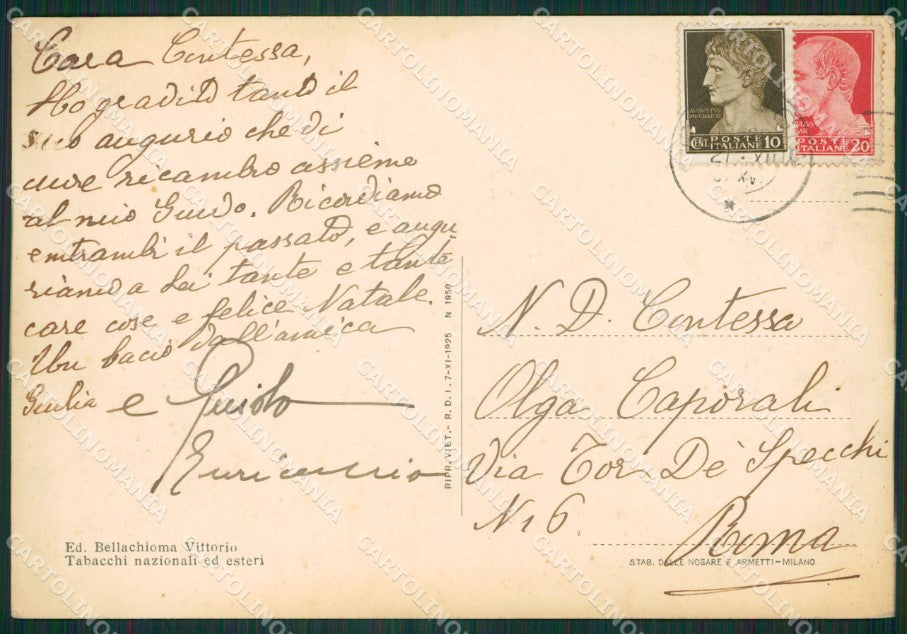 Cara Contessa,
Ho gradito tanto il
suo augurio che di
cuore ricambro assieme
al mio Guido. Ricordiamo
entrambi il passato, e augu
riamo a Lei tante e tante
care cose e felice Natale.
Un bacio dall'amica
Giulia e Guido
Ed. Bellachioma Vittorio
Tabacchi nazionali ed esteri
RIPR. VIET. - R. D. I. 7-XI-1925 N 1950
POSTE
ITALIANE
CENT. 10
POSTE
ITALIANE 20
N. D. Contessa
Olga Caporali
Via Tor Dè Specchi
N 6
Roma
STAB. DALLE NOGARE E ARMETTI-MILANO
CARTOLINOMANIA